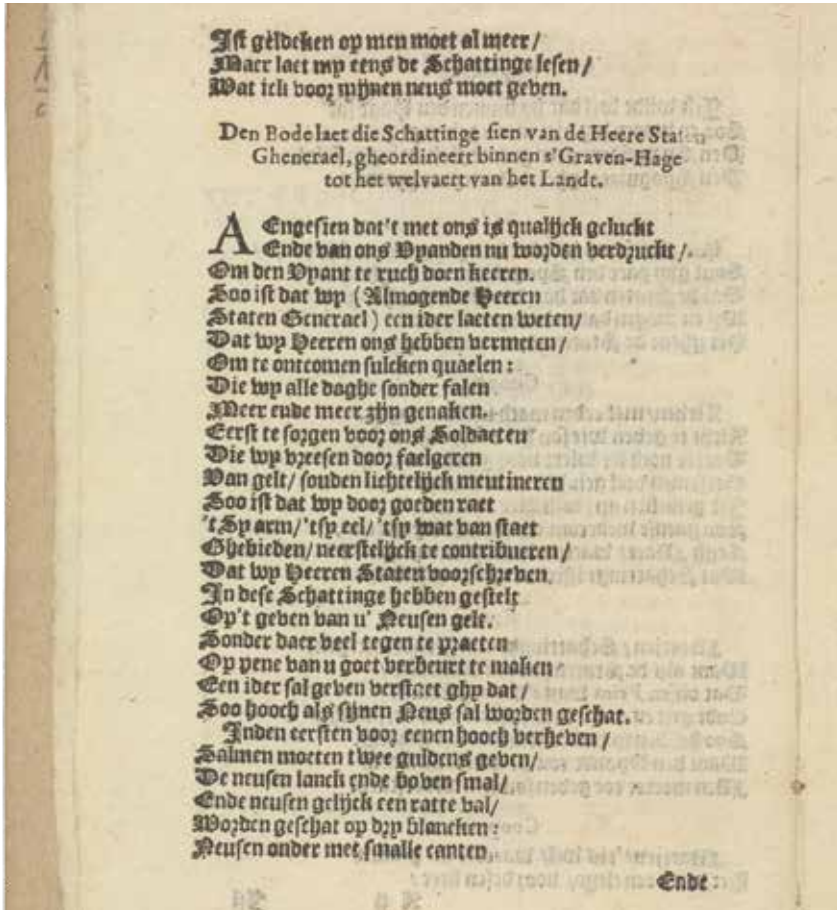 Ist geldeken op men moet al meer/
Maer laet my eens de Schattinge lesen/
Wat ick voor mijnen neus moet geven.
Den Bode laet die Schattinge sien van de Heere Staten
Ghenerael, gheordineert binnen s'Graven-Hage
tot het welvaert van het Landt.
AEngesien dat't met ons is qualijck geluckt
Ende van ons Vyanden nu worden verdruckt/
Om den Vyant te ruch doen keeren.
Soo ist dat wy (Almogende Heeren
Staten Generael) een ider laeten weten/
Dat wy Heeren ons hebben vermeten/
Om te ontcomen sulcken quaelen:
Die wy alle daghe sonder falen
Meer ende meer zijn genaken.
Eerst te sorgen voor ons Soldaeten
Die wy vreesen door faelgeren
Van gelt/ souden lichtelijck meutineren
Soo ist dat wy door goeden raet
't Sy arm/ 'tsy eel/ 'tsy wat van staet
Ghebieden/ neerstelijck te contribueren/
Dat wy Heeren Staten voorschreven
In dese Schattinge hebben gestelt
Op't geven van u' Neusen gelt.
Sonder daer veel tegen te praeten
Op pene van u goet verbeurt te maken
Een ider sal geven verstaet ghy dat/
Soo hooch als sijnen Neus sal worden geschat.
Inden eersten voor eenen hooch verheven/
Salmen moeten twee guldens geven/
De neusen lanck ende boven smal/
Ende neusen gelijck een ratte val/
Worden geschat op dry blancken:
Neusen onder met smalle canten.
Ende